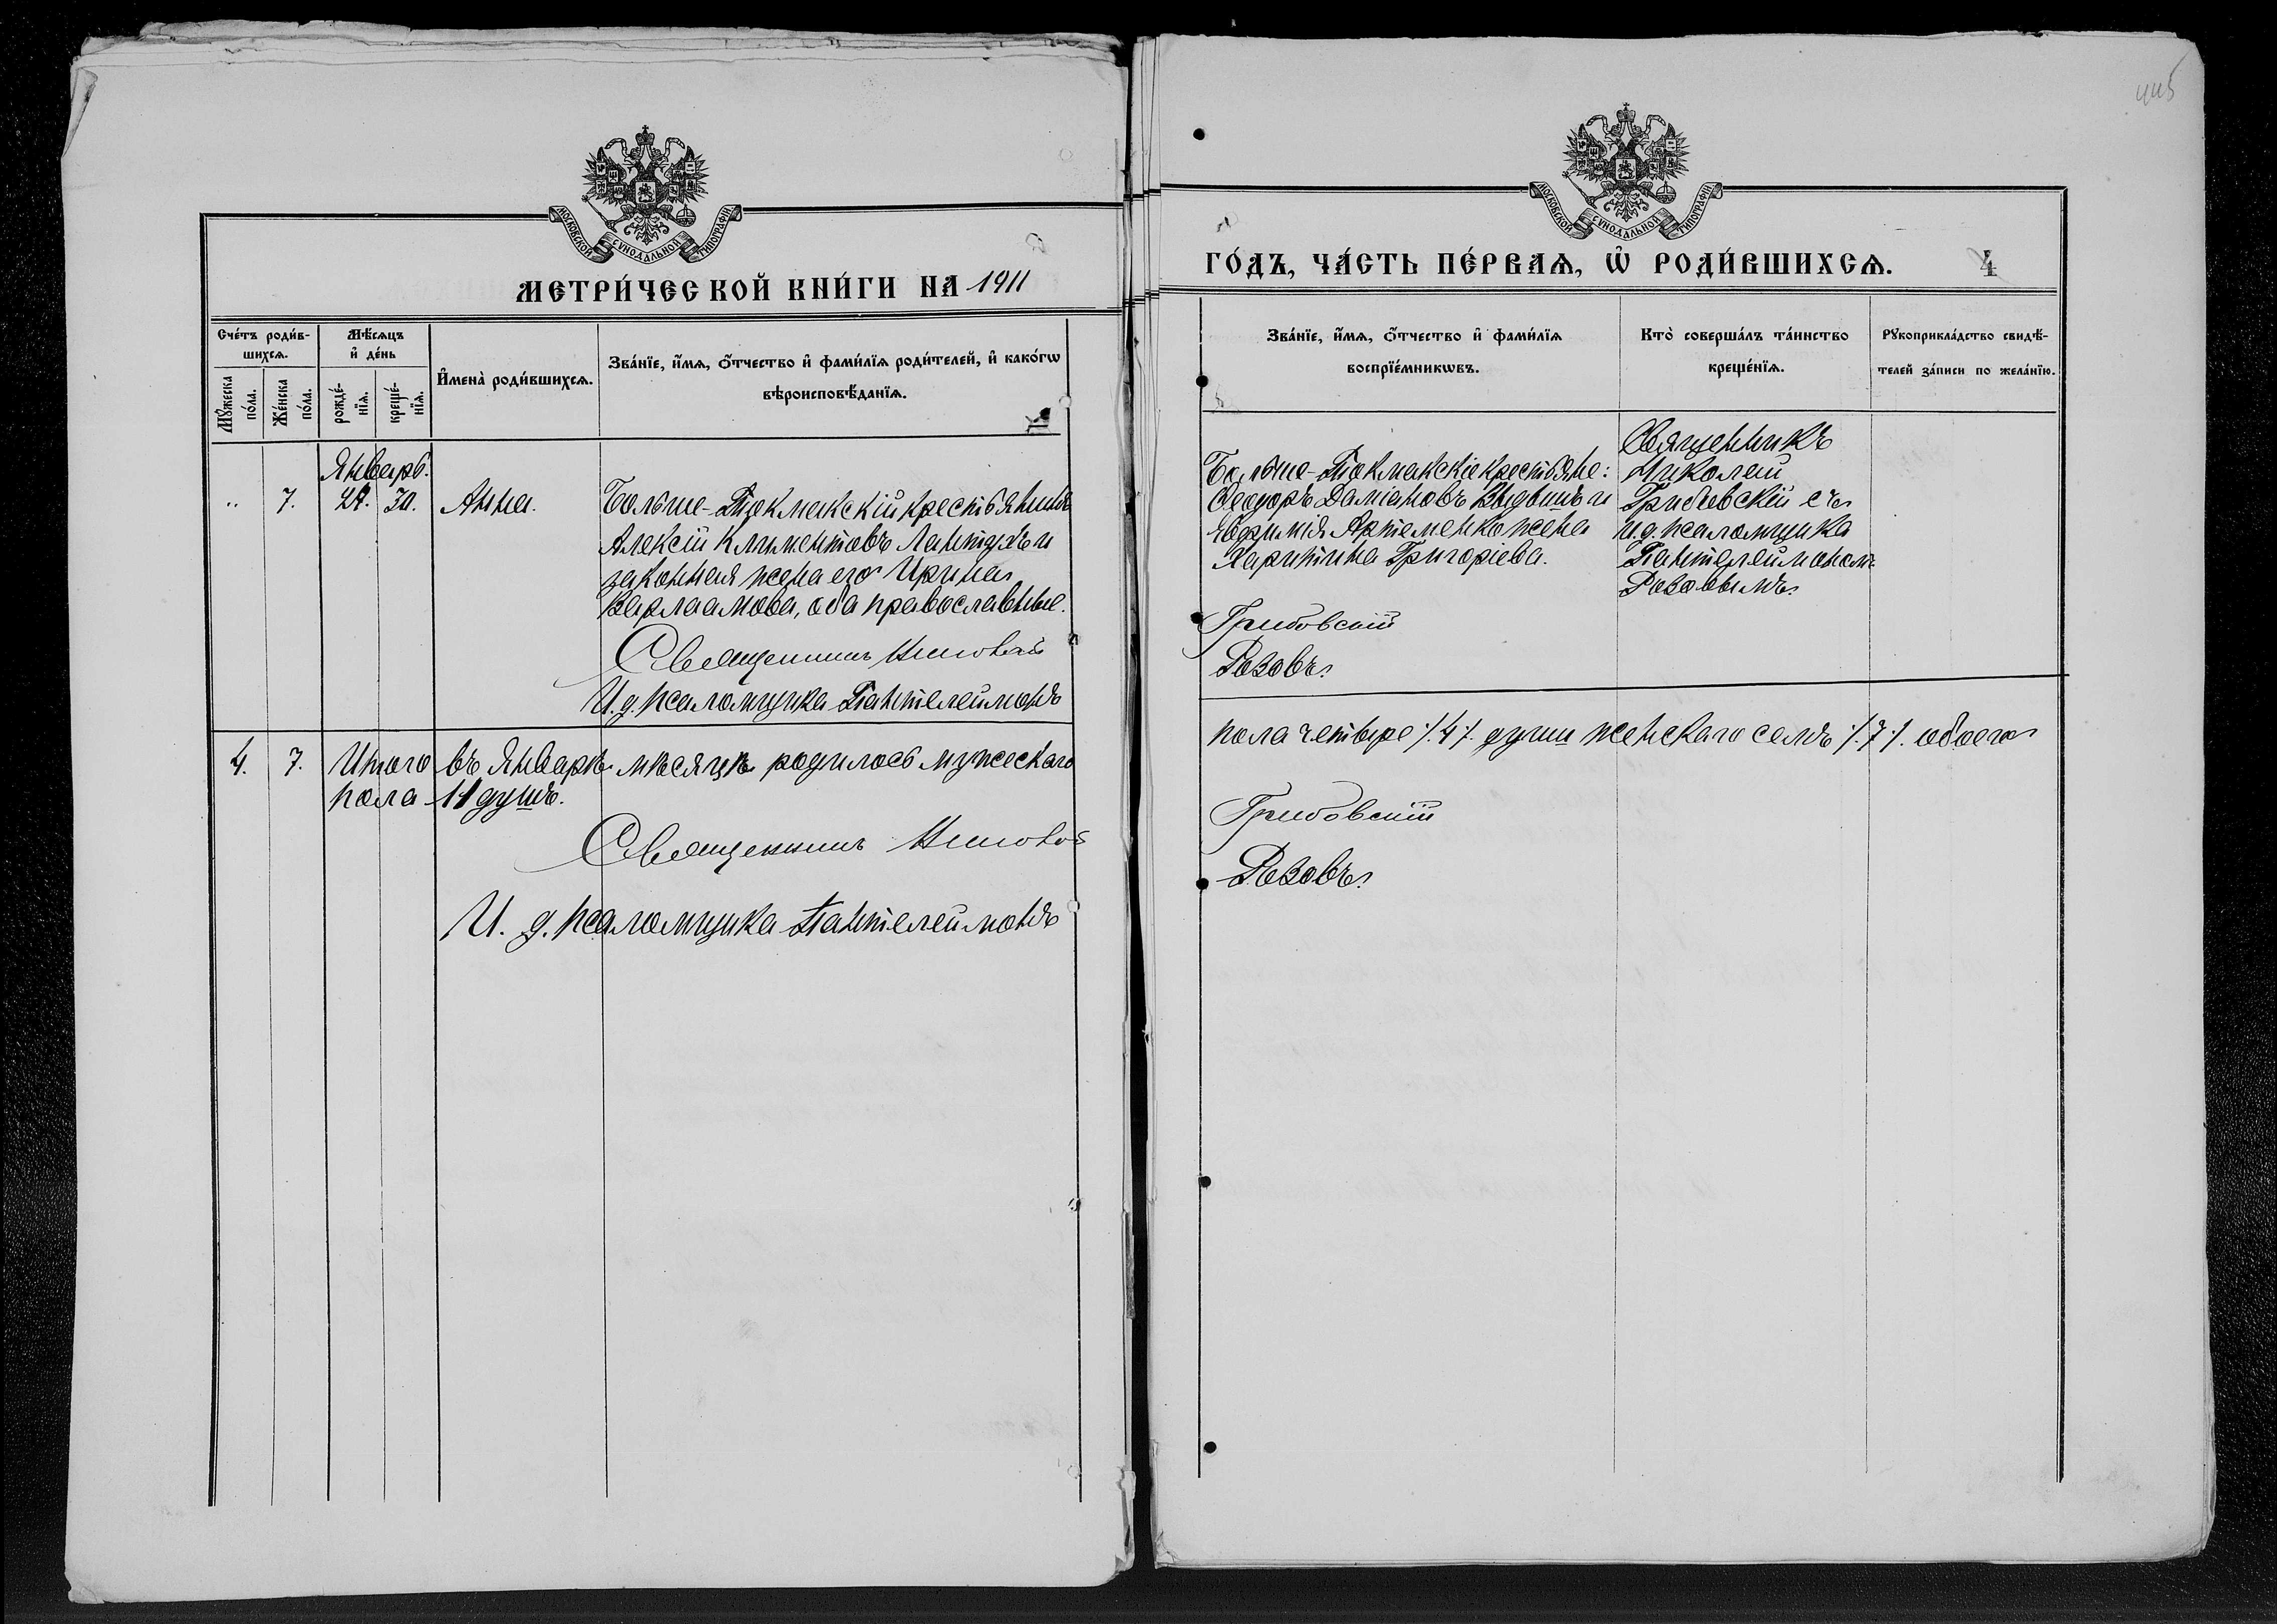 445
МОСКОВСКОЙ СѴНОДАЛЬНОЙ ТИПОГРАФІИ
МЕТРИ́ЧЕСКОЙ КНИ́ГИ НА 1911
Сче́тъ роди́в-
шихсѧ.
Мꙋ́жеска
по́ла.
Же́нска
по́ла.
Мѣ́сѧцъ
и҆ де́нь
рожде́-
нїѧ.
креще́-
нїѧ.
И҆мена̀ роди́вшихсѧ.
Зва́нїе, и҆́мѧ, ѻ҆́тчество и҆ фами́лїѧ роди́телей, и҆ како́гѡ
вѣроисповѣ́данїѧ.
Январь.
„ 7. 30. Анна.
Больше-Токмакскій крестьянинъ
Алексій Климентовъ Лантухъ и
законная жена его Ирина
Варлаамова, оба православные.
Священникъ Николай
И.д. псаломщика Пантелеймонъ
4. 7. Итого въ Январѣ мѣсяцѣ родилось мужескаго
пола 11 душъ.
Священникъ Николай
И. д. псаломщика Пантелеймонъ
МОСКОВСКОЙ СѴНОДАЛЬНОЙ ТИПОГРАФІИ
ГО́ДЪ, ЧА́СТЬ ПЕ́РВАѦ, Ѡ҆ РОДИ́ВШИХСѦ. 4
Зва́нїе, и҆́мѧ, ѻ҆́тчество и҆ фами́лїѧ
воспрїе́мникѡвъ.
Кто̀ соверша́лъ та́инство
креще́нїѧ.
Рꙋкоприкла́дство свидѣ́-
телей за́писи по жела́нїю.
Больше-Токмакскіе крестьяне:
Ѳеодоръ Даміановъ и
Евфимія Артеменко жена
Харитина Григоріева.
Священникъ
Николай
Грибовскій съ
и.д. псаломщика
Пантелеймономъ
Розовымъ
Грибовскій
Розовъ
пола четыре /.4/. души женскаго семь /.7/. обоего
Грибовскій
Розовъ